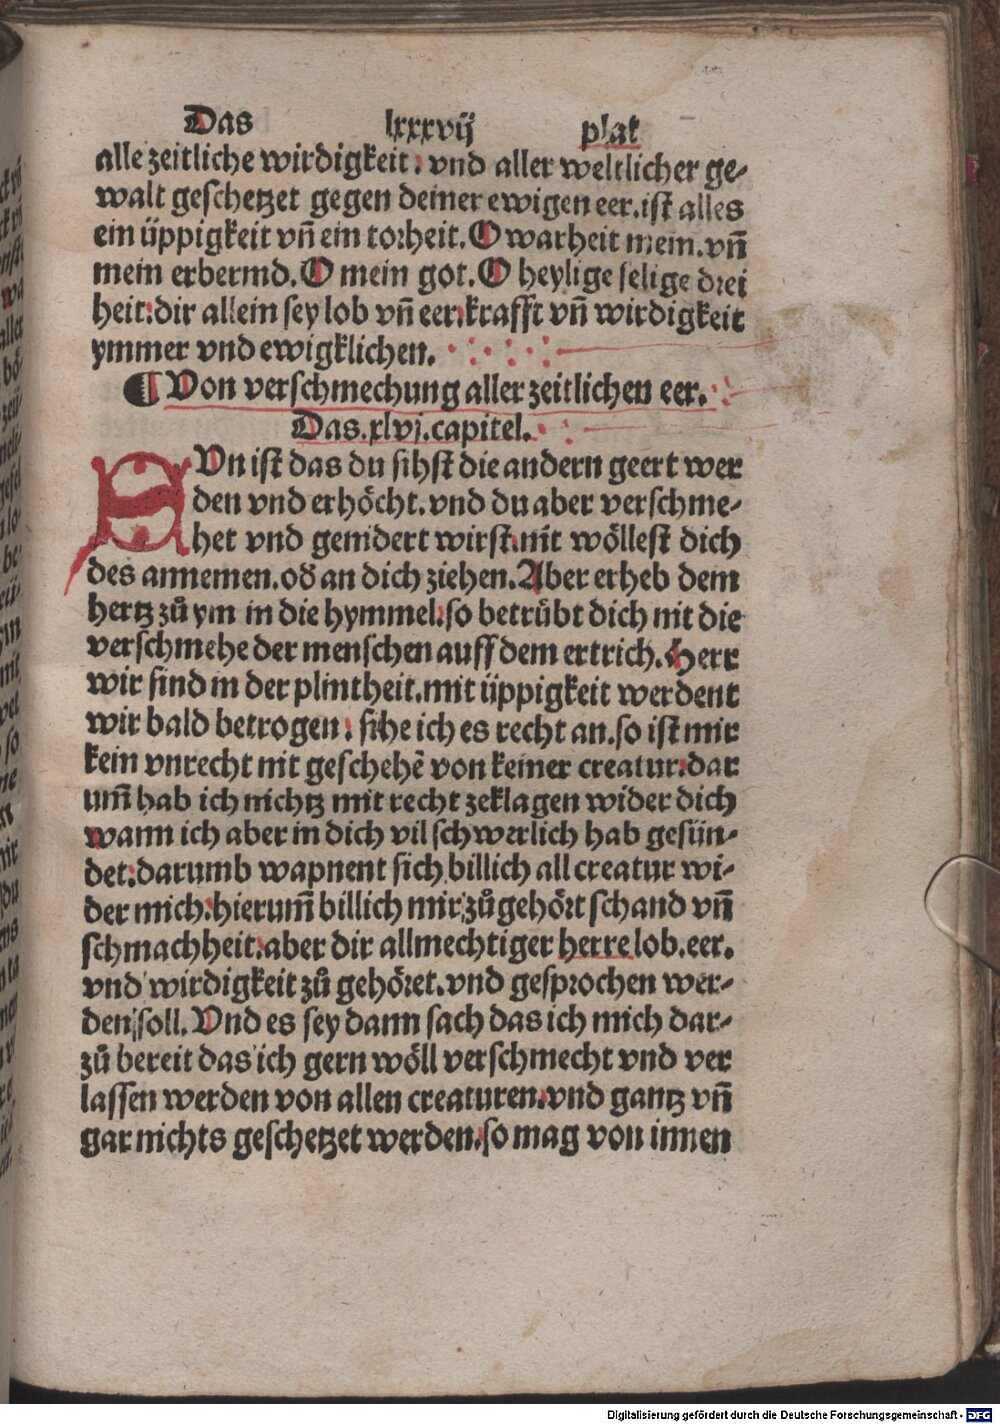 Das lxxxvij plat
alle zeitliche wirdigkeit. vnd aller weltlicher ge-
walt geschetzet gegen deiner ewigen eer. ist alles
ein üppigkeit vñ ein torheit. O warheit mein. vñ
mein erbermd. O mein got. O heylige selige drei
heit: dir allein sey lob vñ eer. krafft vñ wirdigkeit
ymmer vnd ewigklichen.
¶ Von verschmechung aller zeitlichen eer.
Das. xlvj. capitel.
SVn ist das du sihst die andern geert wer
den vnd erhöcht. vnd du aber verschme-
het vnd genidert wirst. nit wöllest dich
des annemen. oď an dich ziehen. Aber erheb dein
hertz zů ym in die hymmel. so betrůbt dich nit die
verschmehe der menschen auff dem ertrich. Herr
wir sind in der plintheit. mit üppigkeit werdent
wir bald betrogen. sihe ich es recht an. so ist mir
kein vnrecht nit geschehē von keiner creatur. dar
um̄ hab ich nichtz mit recht zeklagen wider dich
wann ich aber in dich vil schwerlich hab gesün-
det: darumb wapnent sich billich all creatur wi-
der mich. hierum̄ billich mir zů gehört schand vñ
schmachheit. aber dir allmechtiger herre lob. eer.
vnd wirdigkeit zů gehöret. vnd gesprochen wer-
den soll. Vnd es sey dann sach das ich mich dar-
zů bereit das ich gern wöll verschmecht vnd ver
lassen werden von allen creaturen. vnd gantz vñ
gar nichts geschetzet werden. so mag von innen
Digitalisierung gefördert durch die Deutsche Forschungsgemeinschaft - DFG